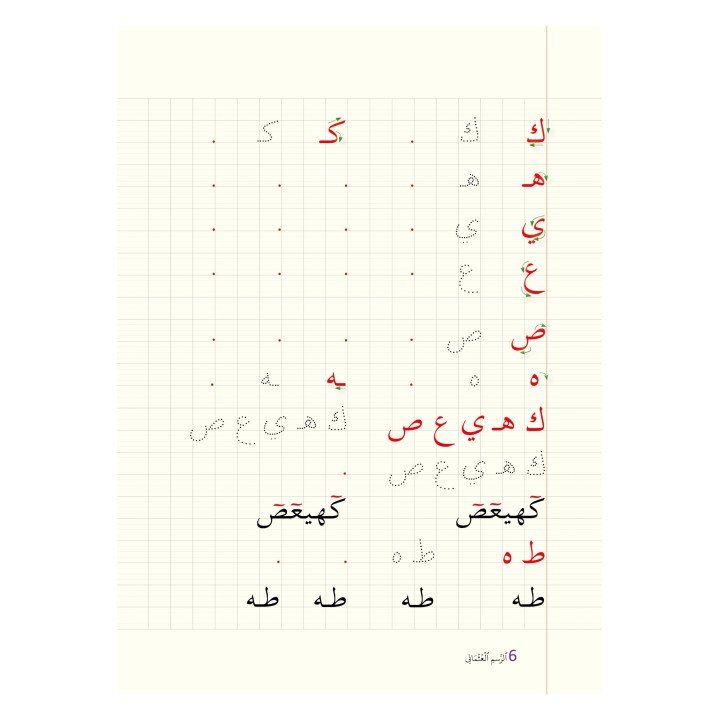 ك ك . كـ كـ .
هـ هـ . . . .
ي ي . . . .
ع ع . . . .
ص ص . . . .
ه ه . ـه ـه .
ك هـ ي ع ص ك هـ ي ع ص
ك هـ ي ع ص .
كٓهيعٓصٓ كٓهيعٓصٓ
ط ه ط ه . .
طه طه طه طه
6 ٱلرَّسمِ ٱلْعُثْمَانِي